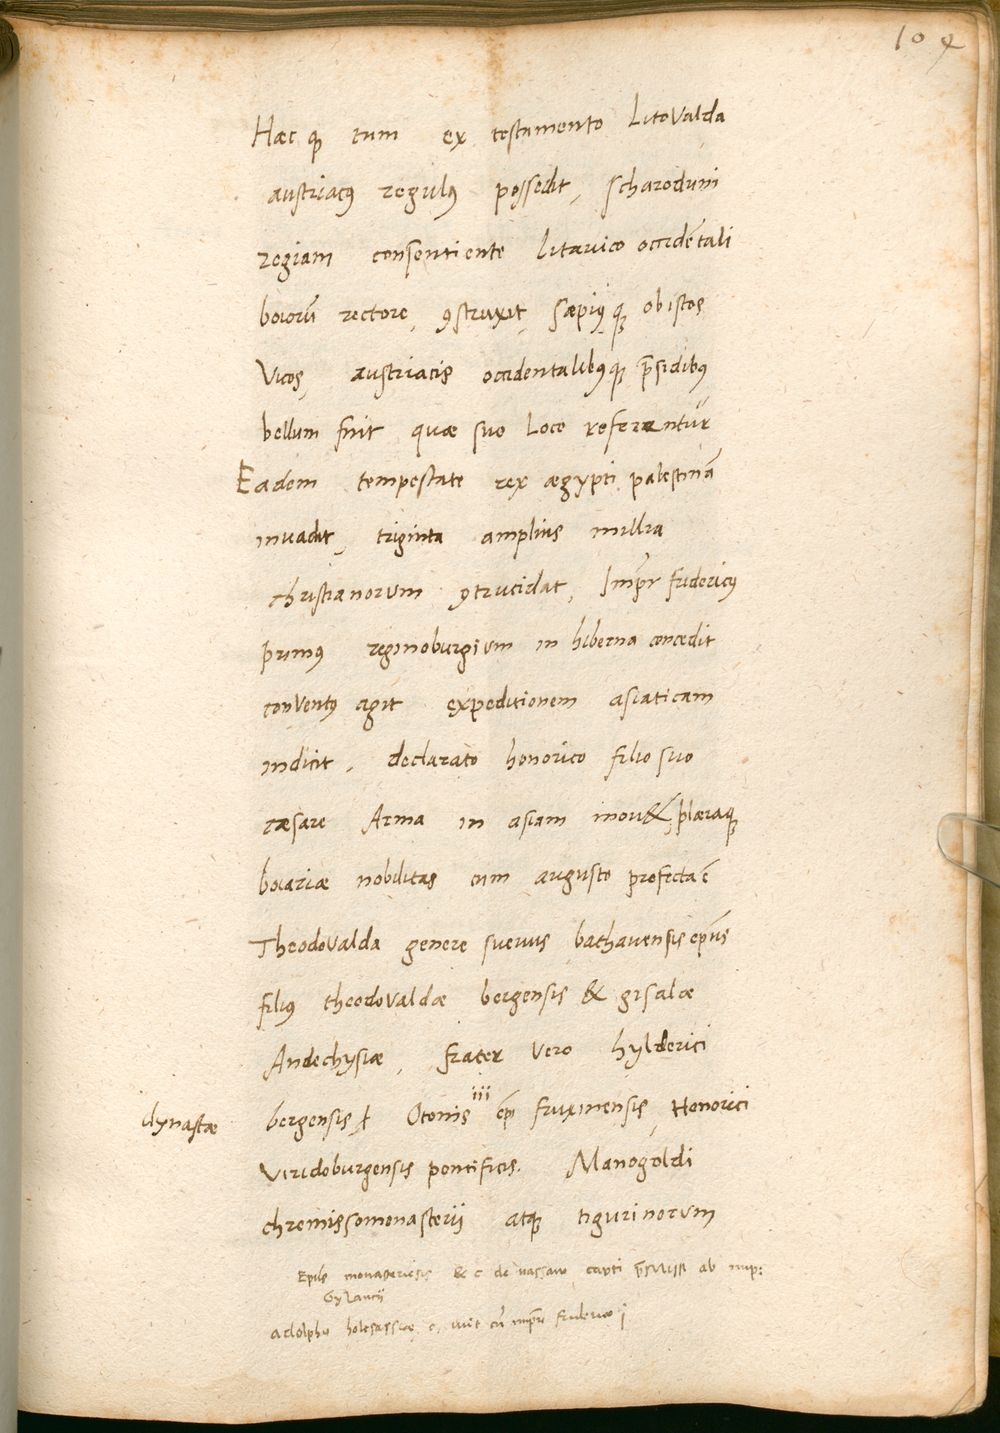 104
Hæc qꝫ tum ex testamento LitoValda
austriacꝰ regulꝰ possedit, scharoduni
regiam consentiente litavico occidētali
boiorū rectore, ꝯstruxit, sæpiꝰ qꝫ obistos
Vicos, austriacis occidentalibꝰqꝫ p̄sidibꝰ
bellum fuit quæ suo loco referantur
Eadem tempestate rex ægypti palestinā
invadit, triginta amplius millia
christianorum ꝯtrucidat, Imp̄r fridericꝰ
primꝰ reginoburgium in hiberna concedit
conventꝰ agit expeditionem asiaticam
indicit, declarato honorico filio suo
cæsare Arma in asiam mov&, plæraqꝫ
boiariæ nobilitas cum augusto profecta ē
TheodoValda genere suevus bathavensis ep̄us
filiꝰ theodoValdæ bergensis & gisalæ
Andechysiæ, frater vero hylderici
dynastæ
bergensis ƚ Otonis iii ep̄i fruxinensis, Honorici
Viridoburgensis pontificis. Manogoldi
chremissomonasterii atqꝫ tigurinorum
monasteriēsis & c de nassaw capti ab imp:
adolphꝰ holesassiæ c,